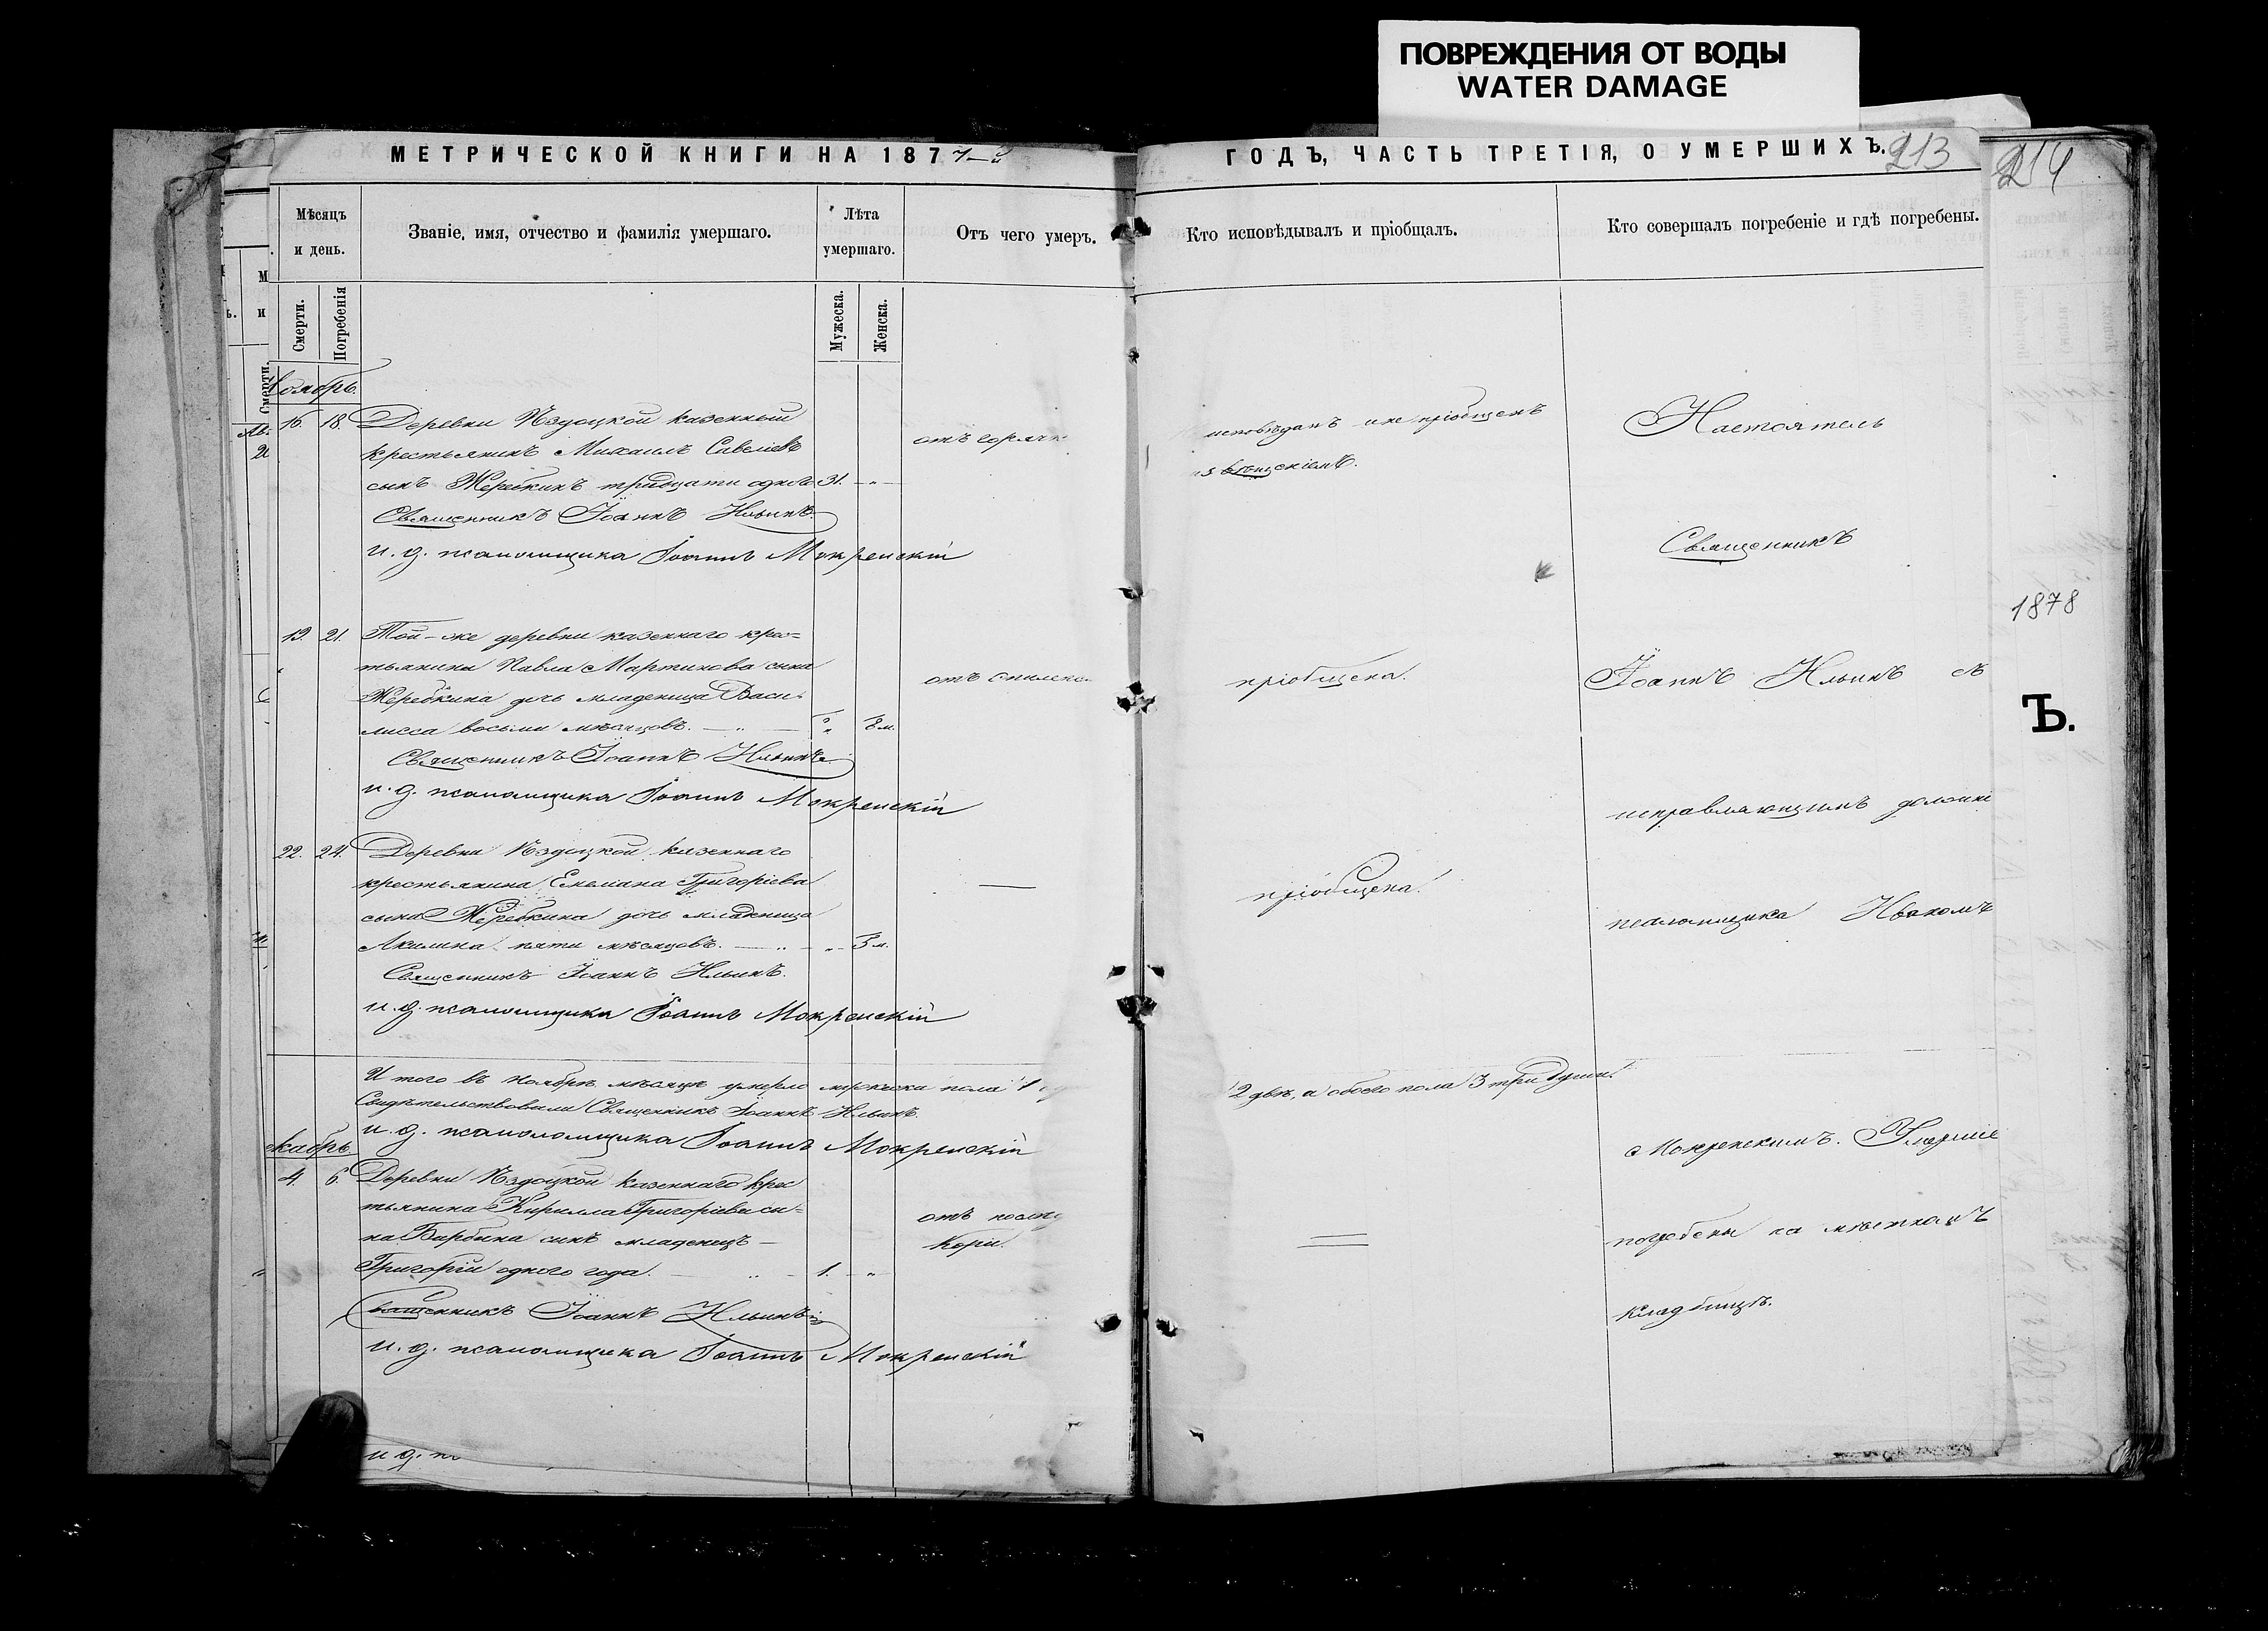 ПОВРЕЖДЕНИЯ ОТ ВОДЫ
WATER DAMAGE
МЕТРИЧЕСКОЙ КНИГИ НА 1877-й
ГОДЪ, ЧАСТЬ ТРЕТІЯ, О УМЕРШИХЪ.
213
214
Мѣсяцъ и день.
Званіе, имя, отчество и фамилія умершаго.
Лѣта умершаго.
Отъ чего умеръ.
Кто исповѣдывалъ и пріобщалъ.
Кто совершалъ погребеніе и гдѣ погребены.
Смерти.
Погребенія
Мужеска.
Женска.
16. 18. Деревни казенный
крестьянинъ Михаилъ Савельевъ
сынъ Жеребкинъ тридцати одного 31. - " -
Священникъ Іоаннъ Ильинъ.
и. д. псаломщика Іоаннъ Мокренскій
19. 21. Той-же деревни казеннаго крес=
тьянина Павла Мартинова сына
Жеребкина дочь младеница Васи-
лисса восьми мѣсяцовъ. 8 м.
Священникъ Іоаннъ Ильинъ
и. д. псаломщика Іоаннъ Мокренскій
пріобщена.
22. 24. Деревни казеннаго
крестьянина Емельяна Григоріева
сына Жеребкина дочь младеница
Акилина пяти мѣсяцовъ. 5 м.
Священникъ Іоаннъ Ильинъ.
и. д. псаломщика Іоаннъ Мокренскій
пріобщена.
Итого въ Ноябрѣ мѣсяцѣ умерло мужеска пола 1
2 двѣ, а обоего пола 3 три души.
Свидѣтельствовали Священникъ Іоаннъ Ильинъ.
и. д. псаломщика Іоаннъ Мокренскій
4. 6. Деревни казеннаго крес
тьянина Кирилла Григоріева сы=
на сынъ младенецъ
Григорій одного года. 1. "
Священникъ Іоаннъ Ильинъ
и. д. псаломщика Іоаннъ Мокренскій
отъ
кори.
и д. пс
Настоятель
Священникъ
Іоаннъ Ильинъ съ
исправляющимъ должн
псаломщика Иваномъ
Мокренскимъ. Умершіе
погребены на мѣстномъ
кладбищѣ.
1878
Ъ.